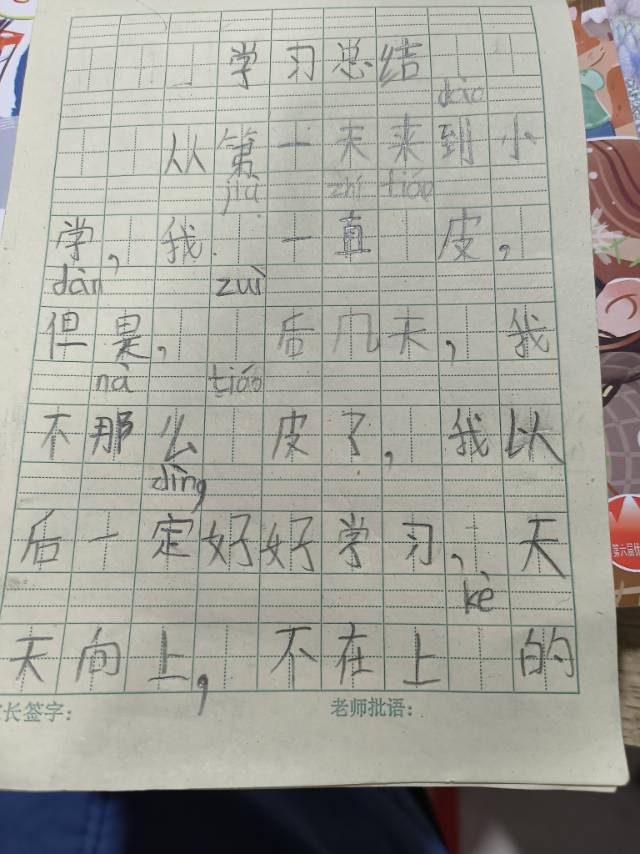 学习总结
dào
从第一天来到小
jiù zhí tiáo
学，我 一直 皮，
dàn zuì
但是， 后几天，我
nà tiáo
不那么 皮了，我以
dìng
后一定好好学习，天
kè
天向上， 不在上 的
长签字： 老师批语：
第六届优